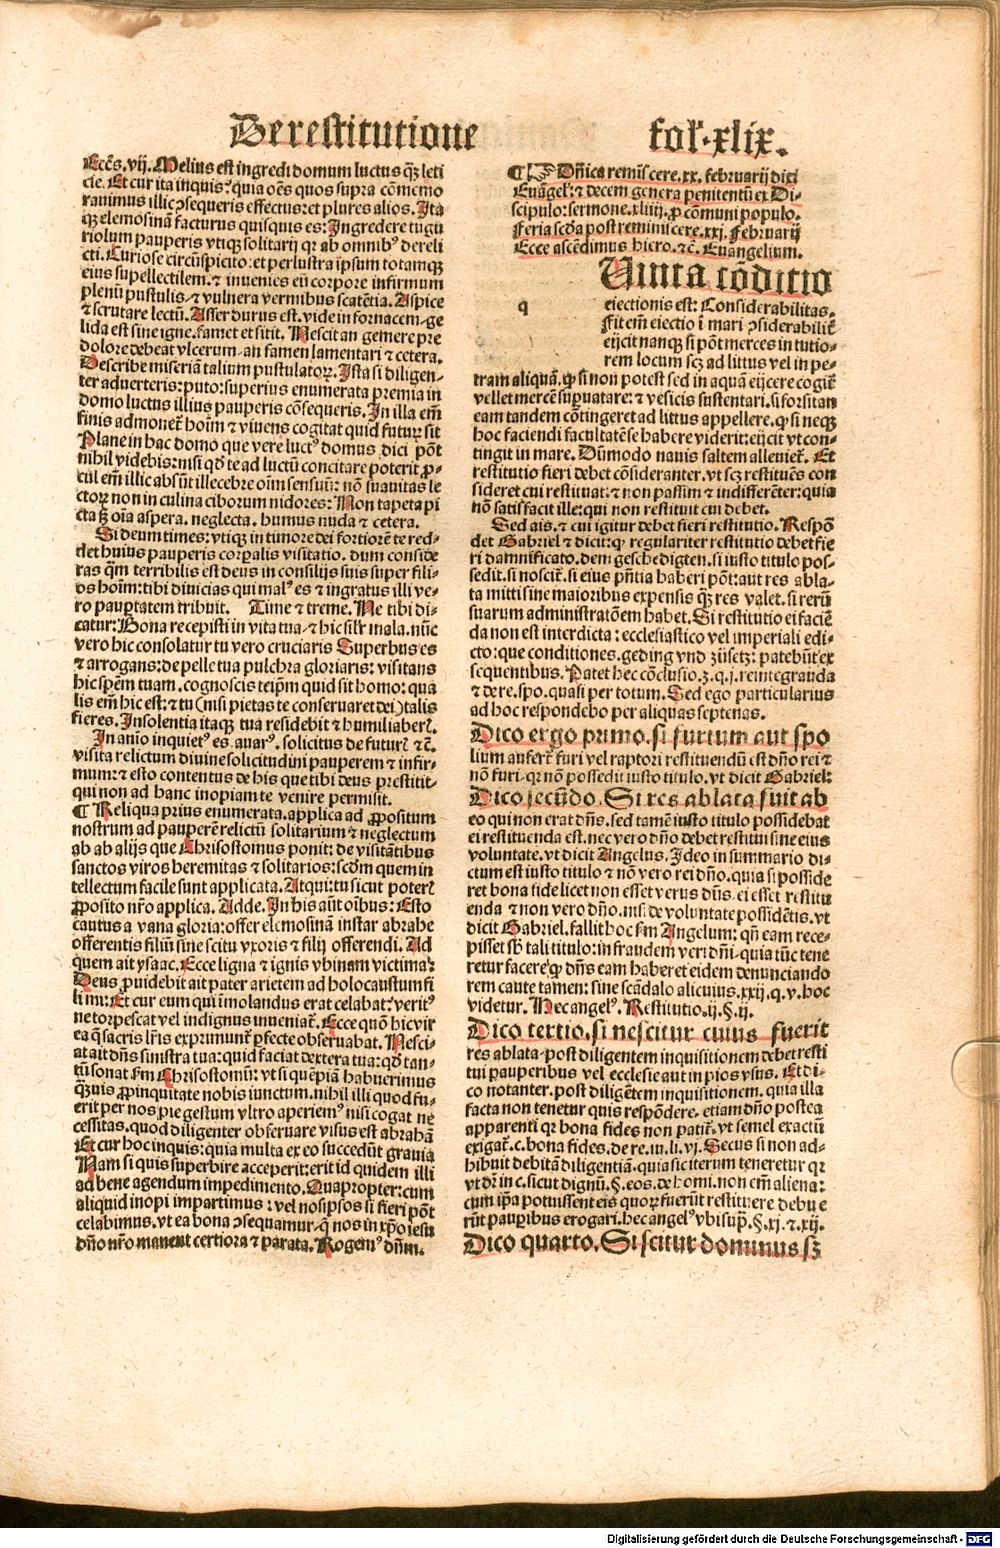 De restitutione
fol̉.xlix.
Ecc̄s.vij. Melius est ingredi domum luctus qȝ leti
cie. Et cur ita inquis? quia oēs quos supra cōmemo
rauimus illic ꝯsequeris effectus: et plures alios. Ita
qȝ elemosinā facturus quisquis es: Ingredere tugu
riolum pauperis vtiqȝ solitarij qꝛ ab omnibꝰ dereli
cti. Curiose circūspicito: et perlustra ipsum totamqȝ
eius supellectilem. ⁊ inuenies eū corpore infirmum
plenū pustulis ⁊ vulnera vermibus scatētia. Aspice
⁊ scrutare lectū. Asser durus est. vide in fornacem-ge
lida est sine igne. famet et sitit. Nescit an gemere pre
dolore debeat vlcerum-an famen lamentari ⁊ cetera.
Describe miseriā talium pustulatoꝝ. Ista si diligen-
ter aduerteris: puto: superius enumerata premia in
domo luctus illius pauperis cōsequeris. In illa em̄
finis admonet̄ hoīm ⁊ viuens cogitat quid futuꝝ sit
Plane in hac domo que vere luctꝰ domus dici pōt
nihil videbis: nisi qd̄ te ad luctū concitare poterit ꝓ-
cul em̄ illic absūt illecebre oīm sensuū: nō suauitas le
ctoꝝ non in culina ciborum nidores: Non tapeta pi
cta sȝ oīa aspera. neglecta. humus nuda ⁊ cetera.
Si deum times: vtiqȝ in timore dei fortiorē te red-
det huius pauperis coꝛpalis visitatio. dum conside
ras q̄m terribilis est deus in consilijs suis super fili-
os hoīm: tibi diuicias qui malꝰ es ⁊ ingratus illi ve-
ro paup̄tatem tribuit. Time ⁊ treme. Ne tibi di-
catur: Bona recepisti in vita tua-⁊ hic silꝛ mala. nūc
vero hic consolatur tu vero cruciaris Superbus es
⁊ arrogans: de pelle tua pulchra gloriaris: visitans
hic spēm tuam. cognoscis teip̄m quid sit homo: qua
lis em̄ hic est: ⁊ tu (nisi pietas te conseruaret dei) talis
fieres. Insolentia itaqȝ tua residebit ⁊ humiliaberꝭ.
In aniō inquietꝰ es auarꝰ. solicitus de futurꝭ ⁊c̄.
visita relictum diuine solicitudini pauperem ⁊ infir-
mum: ⁊ esto contentus de his que tibi deus prestitit-
qui non ad hanc inopiam te venire permisit.
¶ Reliqua prius enumerata. applica ad ꝓpositum
nostrum ad pauperē relictū solitarium ⁊ neglectum
ab ab alijs que Chrisostomus ponit: de visitātibus
sanctos viros heremitas ⁊ solitarios: scd̄m quem in
tellectum facile sunt applicata. Atqui: tu sicut poterꝭ
ꝓposito nr̄o applica. Adde. In his aūt oībus: Esto
cautus a vana gloria: offer elemosinā instar abrahe
offerentis filiū sine scitu vxoris ⁊ filij offerendi. Ad
quem ait ysaac. Ecce ligna ⁊ ignis vbinam victima?
Deus ꝓuidebit ait pater arietem ad holocaustum fi
li mi: Et cur eum qui īmolandus erat celabat? veritꝰ
ne toꝛpescat vel indignus inueniat̄. Ecce quō hic vir
ea q̄ sacris lr̄is exprimunt̄ ꝑfecte obseruabat. Nesci-
at ait dn̄s sinistra tua: quid faciat dextera tua: qd̄ tan-
tū sonat km̄ Chrisostomū: vt si quēpiā habuerimus
q̄ȝuis ꝓpinquitate nobis iunctum. nihil illi quod fu-
erit per nos pie gestum vltro aperiemꝰ nisi cogat ne
cessitas. quod diligenter obseruare visus est abrahā
Et cur hoc inquis: quia multa ex eo succedūt grauia
Nam si quis superbire acceperit: erit id quidem illi
ad bene agendum impedimento. Quapropter: cum
aliquid inopi impartimus: vel nosipsos si fieri pōt
celabimus. vt ea bona ꝯsequamur-q̄ nos in xp̄o iesu
dn̄o nr̄o manent certiora ⁊ parata. Rogemꝰ dn̄m.
¶ ☞ Dn̄ica remīscere.xx. februarij dixi
Euāgelꝭ: ⁊ decem genera penitentū ex Di-
scipulo: sermone.xliiij. ꝓ cōmuni populo.
Feria scd̄a post reminiscere.xxj. Februarij
Ecce ascēdimus hiero. ⁊c̄. Euangelium.
q
Uinta cōditio
eiectionis est: Considerabilitas.
Fit em̄ eiectio ī mari ꝯsiderabilit̄
eijcit nanqȝ si pōt merces in tutio-
rem locum scȝ ad littus vel in pe-
tram aliquā. ꝙ si non potest sed in aquā eijcere cogit̄
vellet mercē supnatare: ⁊ vesicis sustentari. si forsitan
eam tandem cōtingeret ad littus appellere. ꝙ si neqȝ
hoc faciendi facultatē se habere viderit: eijcit vt con-
tingit in mare. Dūmodo nauis saltem alleuiet̄. Et
restitutio fieri debet cōsideranter. vt scȝ restituēs con
sideret cui restituat: ⁊ non passim ⁊ indifferēter: quia
nō satisfacit ille: qui non restituit cui debet.
Sed ais. ⁊ cui igitur debet fieri restitutio. Respō
det Gabriel ⁊ dicit: ꝙ regulariter restitutio debet fie
ri damnificato. dem geschedigten. si iusto titulo pos-
sedit. si noscit̄. si eius pn̄tia haberi pōt: aut res abla-
ta mitti sine maioribus expensis qȝ res valet. si rerū
suarum administratōem habet. Si restitutio ei faciē
da non est interdicta: ecclesiastico vel imperiali edi-
cto: que conditiones. geding vnd zůsetz: patebūt ex
sequentibus. Patet hec cōclusio.3.q.j. reintegranda
⁊ de re. spo. quasi per totum. Sed ego particularius
ad hoc respondebo per aliquas septenas.
Dico ergo primo. si furtum aut spo
lium aufert̄ furi vel raptori restituendū est dn̄o rei ⁊
nō furi-qꝛ non possedit iusto titulo. vt dicit Gabriel:
Dico secūdo. Si res ablata fuit ab
eo qui non erat dn̄s. sed tamē iusto titulo possidebat
ei restituenda est. nec vero dn̄o debet restitui sine eius
voluntate. vt dicit Angelus. Ideo in summario di-
ctum est iusto titulo ⁊ nō vero rei dn̄o. quia si posside
ret bona fide licet non esset verus dn̄s ei esset restitu
enda ⁊ non vero dn̄o. nisi de voluntate possidētis. vt
dicit Gabriel. fallit hoc km̄ Angelum: qn̄ eam rece-
pisset sb̄ tali titulo: in fraudem veri dn̄i-quia tūc tene
retur facere ꝙ dn̄s eam haberet eidem denunciando
rem caute tamen: sine scādalo alicuius.xxij.q.v. hoc
videtur. Hec angelꝰ. Restitutio.ij.§.ij.
Dico tertio. si nescitur cuius fuerit
res ablata-post diligentem inquisitionem debet resti
tui pauperibus vel ecclesie aut in pios vsus. Et di-
co notanter. post diligētem inquisitionem. quia illa
facta non tenetur quis respōdere. etiam dn̄o postea
apparenti qꝛ bona fides non patit̄. vt semel exactū
exigat̄.c. bona fides. de re. in. li. vj. Secus si non ad-
hibuit debitā diligentiā. quia sic iterum teneretur qꝛ
vt dꝛ in c. sicut dignū.§. eos. de homi. non em̄ aliena:
cum ip̄a potuissent eis quoꝝ fuerūt restituere debue
rūt pauꝑibus erogari. hec angelꝰ vbi sup̄.§.xj.⁊.xij.
Dico quarto. Si scitur dominus sȝ
Digitalisierung gefördert durch die Deutsche Forschungsgemeinschaft - DFG